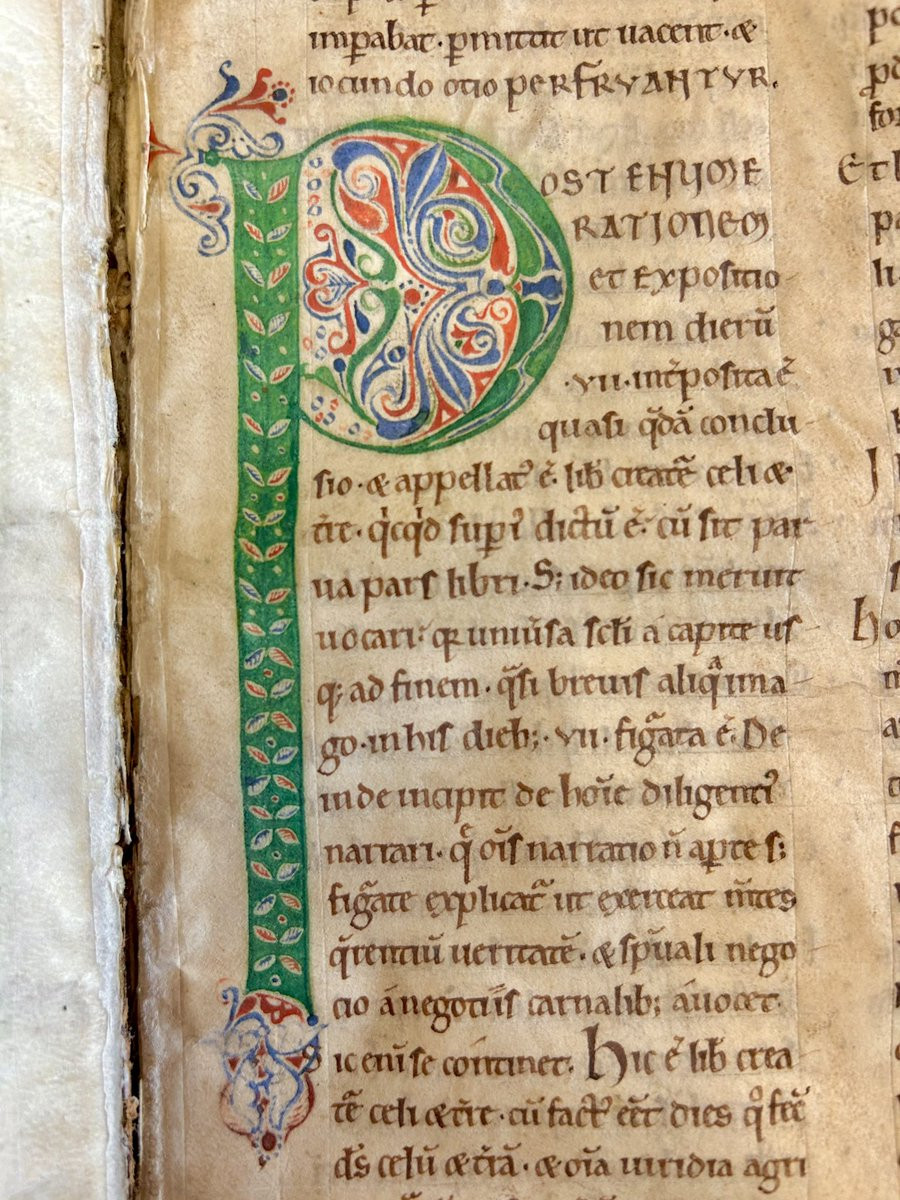 imꝑabat · ꝑmittit ut uacent · &
iocundo otio PERFRVANTVR.
POST ENUME
RATIONEM
et expositio
nem dierū
· vii · int̄posita ē
quasi q̄dā conclu
sio · & appellat᾽ ē · lib̄ creatē celi &
t̄re · qͥcqͥd suꝑi᾽ dictū ē · cū sit par
ua pars libri · S; ideo sic meruit
uocari · qꝛ uniūsa sc̄li a capite us
q; ad finem · q̄si breuis aliqͣ ima
go · in his dieb; · vii · figᷓata ē · De
inde incipit de hoīe diligenti᾽
narrari · q̄ oīs narratio n̄ aꝑte s;
figᷓate explicat᷑ ut exerceat m̄tes
q̄rentiū ueritatē · & sp̄uali nego
cio a negotiis carnalib; auocet ·
Sic eni se continet · Hic ē lib̄ crea
tē celi & t̄re · cū fact᾽ eēt dies qͦ fec̄
d̄s celū & t̄rā · & oīa uiridia agri